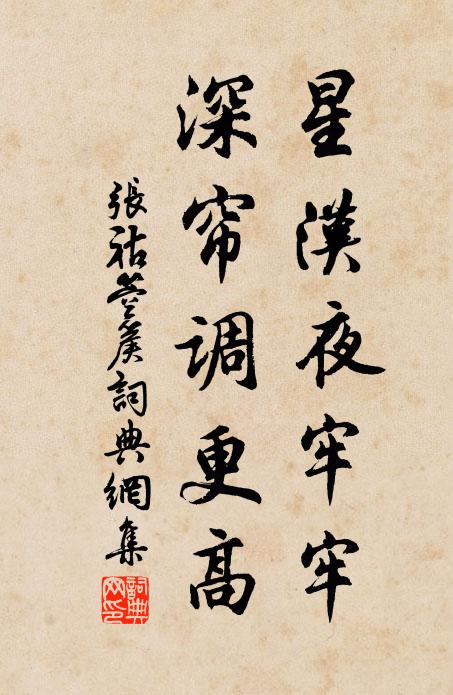 星漢夜牢牢
深帘调更高
張祜箜篌詞典網集
詞典网印